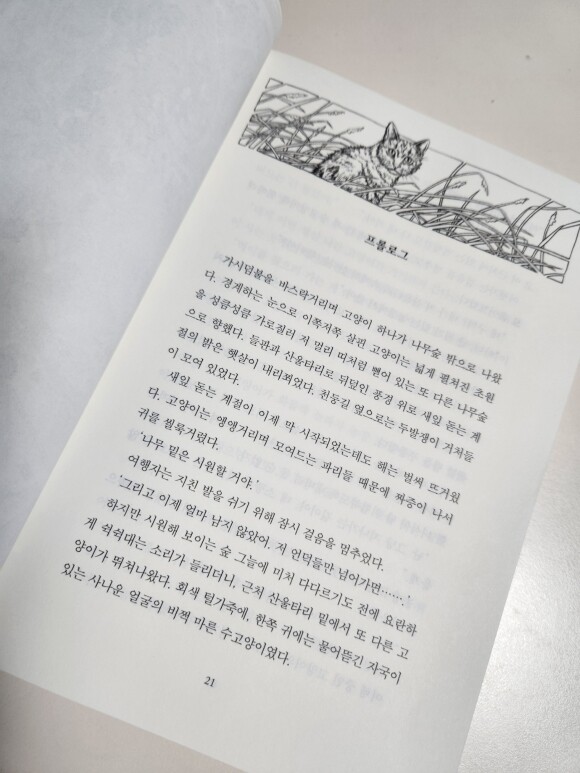 프롤로그
가시덤불을 바스락거리며 고양이 하나가 나무숲 밖으로 나왔
다. 경계하는 눈으로 이쪽저쪽 살핀 고양이는 넓게 펼쳐진 초원
을 성큼성큼 가로질러 저 멀리 띠처럼 뻗어 있는 또 다른 나무숲
으로 향했다. 들판과 산울타리로 뒤덮인 풍경 위로 새잎 돋는 계
절의 밝은 햇살이 내리쬐었다. 천둥길 옆으로는 두발쟁이 거처들
이 모여 있었다.
새잎 돋는 계절이 이제 막 시작되었는데도 해는 벌써 뜨거웠
다. 고양이는 앵앵거리며 모여드는 파리들 때문에 짜증이 나서
귀를 씰룩거렸다.
'나무 밑은 시원할 거야.'
여행자는 지친 발을 쉬기 위해 잠시 걸음을 멈추었다.
'그리고 이제 얼마 남지 않았어. 저 언덕들만 넘어가면…….'
하지만 시원해 보이는 숲 그늘에 미처 다다르기도 전에 요란하
게 쉭쉭대는 소리가 들리더니, 근처 산울타리 밑에서 또 다른 고
양이가 뛰쳐나왔다. 회색 털가죽에, 한쪽 귀에는 물어뜯긴 자국이
있는 사나운 얼굴의 비쩍 마른 수고양이였다.
21